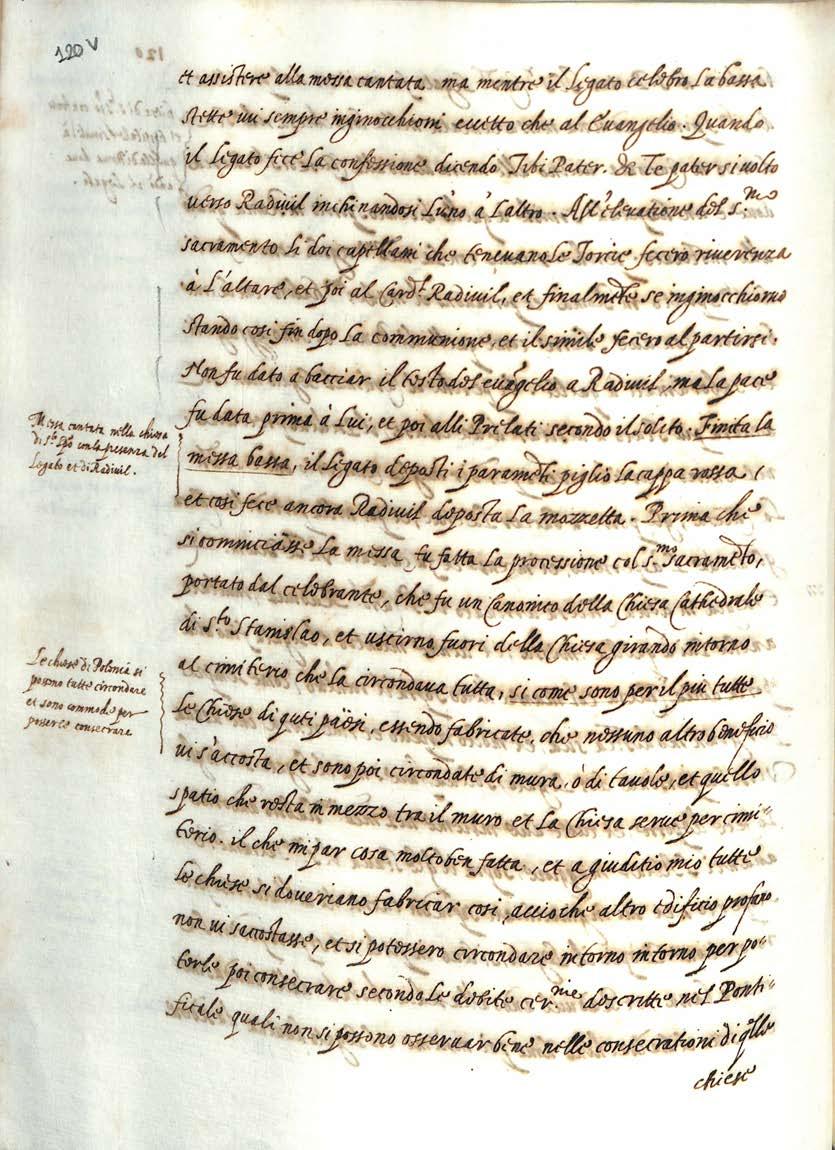 120 v
et assistere alla messa cantata ma mentre il Legato celebro La bassa
stette vi sempre inginocchioni eccetto che al Evangelio. Quando
il Legato fece La confessione dicendo Tibi Pater. & Te pater si volto
verso Radivil inchinandosi L'uno à L'altro. All'elevatione del S.mo
sacramento Li doi capellani che tenevano le Torcie fecero riverenza
à L'altare, et poi al Card.l Radivil, et finalmẽte se inginocchiorno
stando cosi fin dopo La communione, et il simile fecero al partirsi.
Non fu dato a bacciar il testo del evãgelio a Radivil, ma La pace
fu data prima à Lui, et poi alli Prelati secondo il solito. Finita la
messa bassa, il Legato deposti i paramẽti piglio la cappa rossa,
et cosi fece ancora Radivil deposta La mozzetta. Prima che
si cominciasse La messa fu fatta La processione col S.mo Sacramẽto,
portato dal celebrante, che fu un Canonico della Chiesa Cathedrale
di S.to Stanislao, et uscirno fuori della Chiesa girando intorno
al cimiterio che la circondava tutta, si come sono per il piu tutte
Le Chiese di q̃sti paesi, essendo fabricate, che nessuno altro beneficio
vi s'accosta, et sono poi circondate di mura, ò di tavole, et quello
spatio che resta in mezzo tra il muro et La Chiesa serve per cimi=
terio. il che mi par cosa molto ben fatta, et a giuditio mio tutte
Le chiese si doveriano fabricar cosi, accioche altro edificio profano
non vi saccostasse, et si potessero circondare intorno intorno per po=
terle poi consecrare secondo Le debite cer.nie descritte nel Ponti=
ficale quali non si possono osservar bene nelle consecrationi di q̃lle
chiese
Messa cantata nella chiesa
di S.to con la presenza del
Legato et di Radivil.
Le chiese di Polonia si
possono tutte circondare
et sono commode per
posserle consecrare